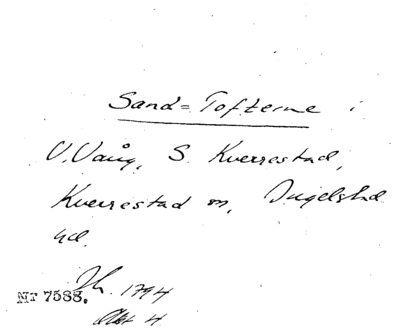 Sand=Tofterne i
V. Vång, S. Kverrestad,
Kverrestad sn, Ingelstad
hd.
Nr 7588. Lh. 1794
Akt 4